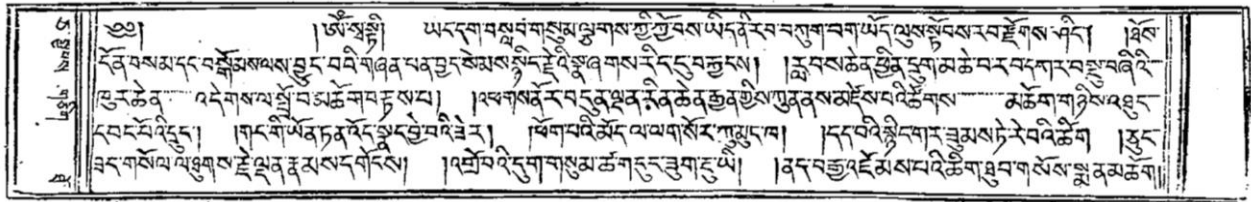 ༄༅། །ༀ་སྭསྟི། ཡང་དག་བསླབ་གསུམ་ལྷུགས་ཀྱི་ཀྱོབས་ཡིད་ནི་རབ་བཀྲག་བག་ཡོད་ལུས་སྟོབས་རབ་རྫོགས་ཤིང་། །ཐོས་
དོན་བསམ་དང་བསྒོམས་ལས་བྱུང་བའི་གཞན་ཕན་བྱང་སེམས་སྙིང་རྗེའི་སྣ་ཞགས་རིང་དུ་བརྐྱངས། །རླབས་ཆེན་ཕྱིན་དྲུག་མཆེ་བ་རབ་དཀར་བསྡུ་བཞིའི་
ཁུར་ཆེན་ འདེགས་ལ་སྤྲོ་བ་མཆོག་བརྟས་པ། །འཕགས་ནོར་བདུན་ལྡན་རིན་ཆེན་རྒྱན་གྱིས་ཀུན་ནས་མཛེས་པའི་ཚོགས་ མཆོག་གཉིས་འཐུང་
དབང་པོའི་དྲུང་། །གང་གི་ཡོན་ཏན་འོད་སྣང་བྱེ་བའི་ཟེར། །ཕོག་པའི་མོད་ལ་ལག་སོར་ཀུ་མུད་ཁ། །དད་བའི་སྙིང་གར་ཟུམས་ཏེ་རེ་བའི་ཚིག །ཆུང་
ཟད་གསོལ་ལ་ཐུགས་རྗེ་ལྡན་རྣམས་དགོངས། །འགྲོ་བའི་དུག་གསུམ་ཚ་གདུང་ཟུག་རྔུ་ཡི། །ནད་བརྒྱ་འཇོམས་པའི་ཚིག་ཐུབ་གསོས་སྨན་མཆོག།